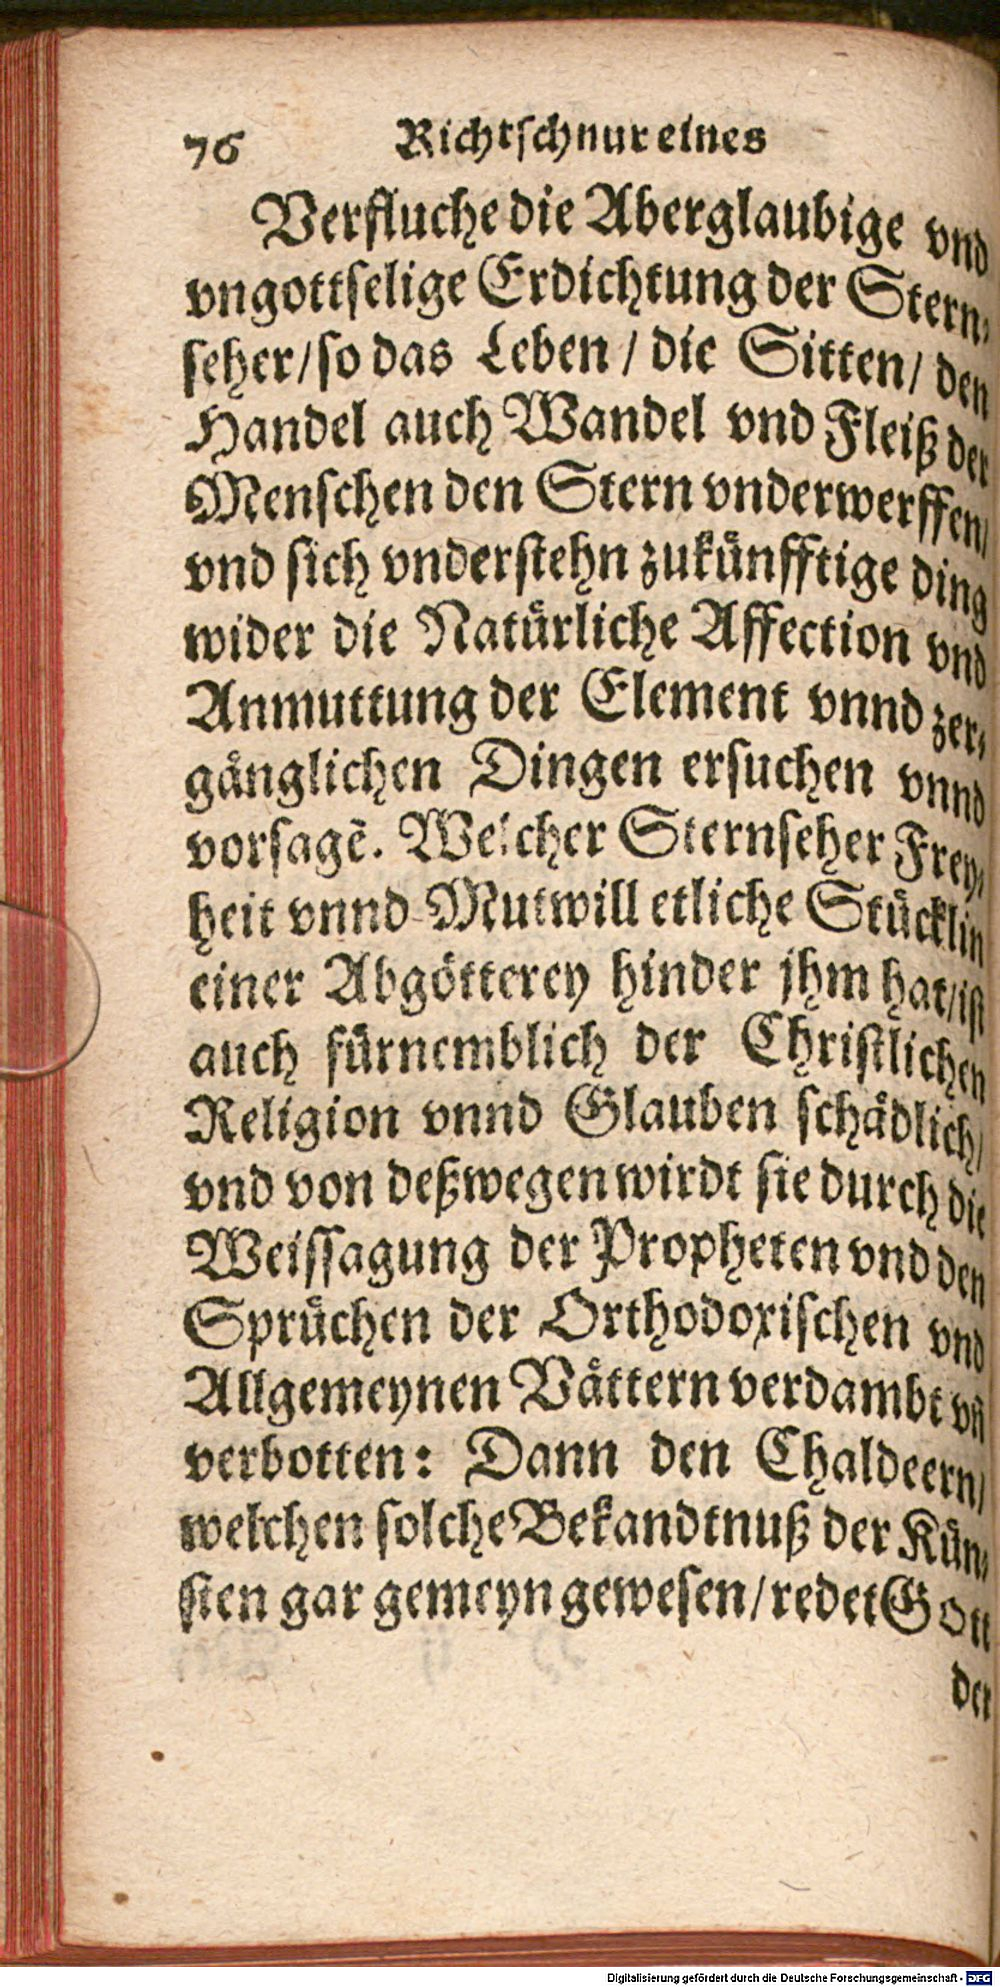 76 Richtschnur eines
Verfluche die Aberglaubige vnd
vngottselige Erdichtung der Stern⸗
seher/ so das Leben / die Sitten/ den
Handel auch Wandel vnd Fleiß der
Menschen den Stern vnderwerffen/
vnd sich vnderstehn zukünfftige ding
wider die Natürliche Affection vnd
Anmuttung der Element vnnd zer⸗
gänglichen Dingen ersuchen vnnd
vorsagē. Welcher Sternseher Frey⸗
heit vnnd Mutwill etliche Stücklin
einer Abgötterey hinder jhm hat/ ist
auch fürnemblich der Christlichen
Religion vnnd Glauben schädlich/
vnd von deßwegen wirdt sie durch die
Weissagung der Propheten vnd den
Sprüchen der Orthodoxischen vnd
Allgemeynen Vättern verdambt vñ
verbotten: Dann den Chaldeern/
welchen solche Bekandtnuß der Kün⸗
sten gar gemeyn gewesen/ redet Gott
der
Digitalisierung gefördert durch die Deutsche Forschungsgemeinschaft - DFG